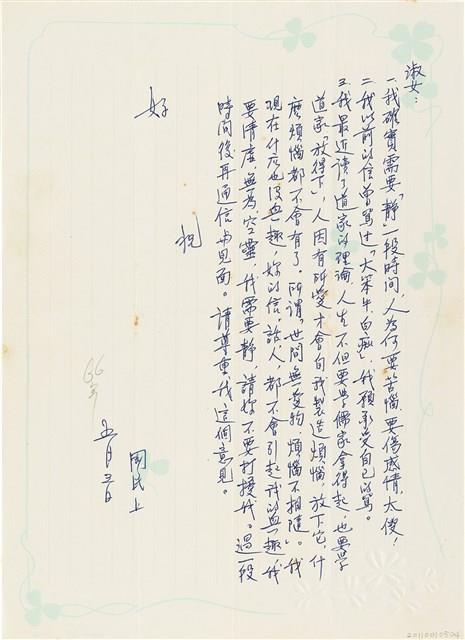 淑女：
一、我確實需要「靜」一段時間，人為何要苦惱、要傷感情，大傻！
二、我以前的信曾罵过「大笨牛、白痴」，我預承受自己的罵。
三、我最近讀了道家的理論，人生不但要學儒家拿得起，也要學
道家「放得下」，人因有所愛才會自我製造煩惱，放下它，什
麼煩惱都不會有了。所謂「世間無愛物，煩惱不相隨」。我
現在什么也沒興趣，妳的信、話、人，都不會引起我的興趣，我
要清虛，無為空靈，我需要靜，請妳不要打擾我。過一段
時間後再通信与見面。請尊重我這個意見。
祝
好
國民上
五月三日
66年
20110010504